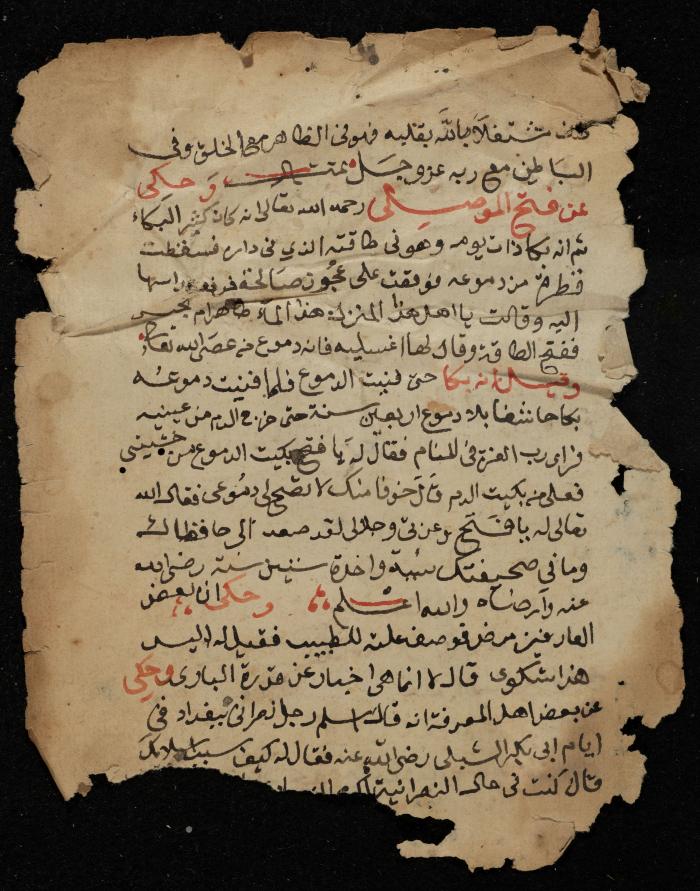 مشتغلا بالله بقلبه فهو في الظاهر مع الخلق وفي
الباطن مع ربه عز وجل تمت وحكي
عن فتح الموصلي رحمه الله تعالى انه كان كثير البكاء
ثم انه بكا ذات يومه وهو في طاقته الذي في داره فسقطت
قطرة من دموعه فوقعت على عجوز صالحة فرفعت راسها
اليه وقالت يا اهل هذا المنزل هذا الماء طاهر ام نجس
ففتح الطاقة وقال لها اغسليه فانه دموع من عصى الله تعالى
وقيل انه بكا حتى فنيت الدموع فلما فنيت دموعه
بكا بلا دموع اربعين سنة حتى خرج الدم من عينيه
فراى رب العزة في المنام فقال له يا فتح بكيت الدموع من خشيتي
فعلى من بكيت الدم قال خوفا منك لا تصح لي دموعي فقال الله
تعالى له يا فتح وعزتي وجلالي لقد صعد الي حافظاك
وما في صحيفتك سيئة واحدة ستين سنة رضي الله
عنه وارضاه والله اعلم وحكي ان بعض
العارفين مرض فوصف علته للطبيب فقيل له اليس
هذا شكوى قال لا انما هي اخبار عن قدرة الباري وحكي
عن بعض اهل المعرفة انه قال اسلم رجل نصراني ببغداد في
ايام ابي بكر الشبلي رضي الله عنه فقال له كيف سبب اسلامك
قال كنت في حال النصرانية